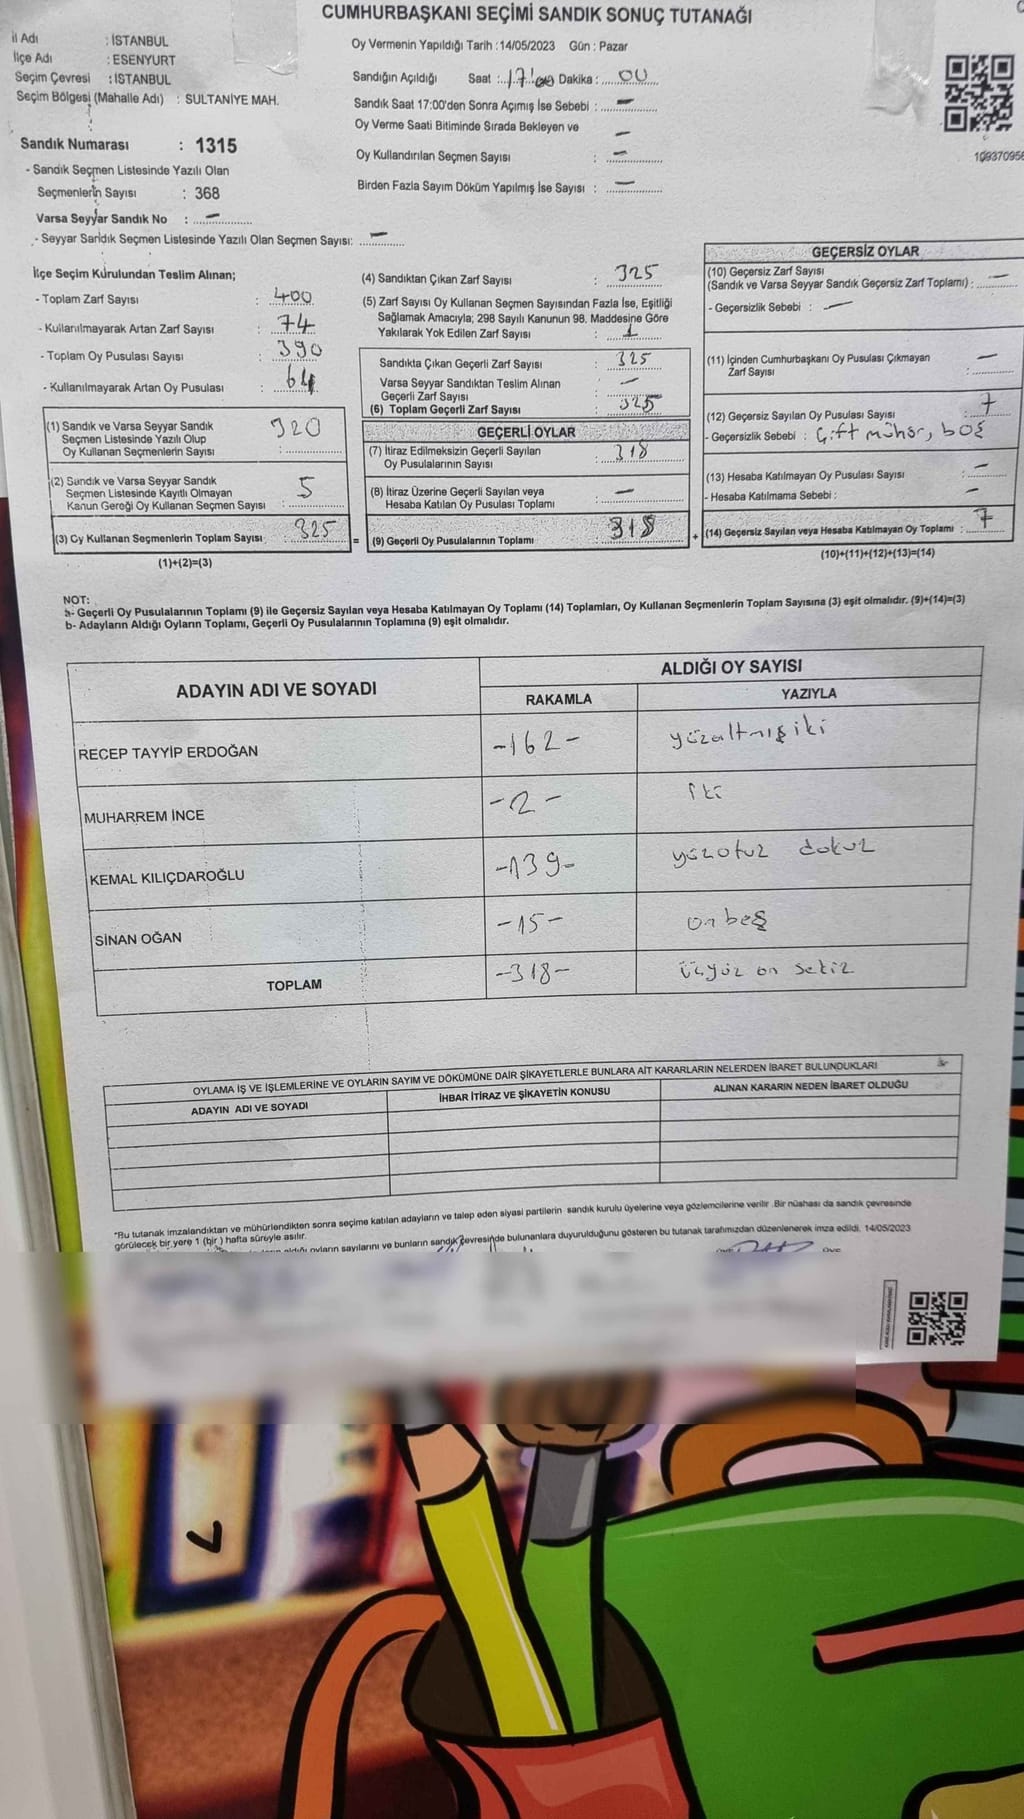 CUMHURBAŞKANI SEÇİMİ SANDIK SONUÇ TUTANAĞI
İl Adı : İSTANBUL
İlçe Adı : ESENYURT
Seçim Çevresi : İSTANBUL
Seçim Bölgesi (Mahalle Adı) : SULTANİYE MAH.
Sandık Numarası : 1315
- Sandık Seçmen Listesinde Yazılı Olan
Seçmenlerin Sayısı : 368
Varsa Seyyar Sandık No : –
- Seyyar Sandık Seçmen Listesinde Yazılı Olan Seçmen Sayısı: –
Oy Vermenin Yapıldığı Tarih : 14/05/2023 Gün : Pazar
Sandığın Açıldığı Saat : 17:00 Dakika : 00
Sandık Saat 17:00'den Sonra Açımış İse Sebebi : –
Oy Verme Saati Bitiminde Sırada Bekleyen ve –
Oy Kullandırılan Seçmen Sayısı : –
Birden Fazla Sayım Döküm Yapılmış İse Sayısı : –
109370956
İlçe Seçim Kurulundan Teslim Alınan;
- Toplam Zarf Sayısı : 400
- Kullanılmayarak Artan Zarf Sayısı : 74
- Toplam Oy Pusulası Sayısı : 390
- Kullanılmayarak Artan Oy Pusulası : 64
(1) Sandık ve Varsa Seyyar Sandık
Seçmen Listesinde Yazılı Olup
Oy Kullanan Seçmenlerin Sayısı : 320
(2) Sandık ve Varsa Seyyar Sandık
Seçmen Listesinde Kayıtlı Olmayan
Kanun Gereği Oy Kullanan Seçmen Sayısı : 5
(3) Oy Kullanan Seçmenlerin Toplam Sayısı : 325
(1)+(2)=(3)
(4) Sandıktan Çıkan Zarf Sayısı : 325
(5) Zarf Sayısı Oy Kullanan Seçmen Sayısından Fazla İse, Eşitliği
Sağlamak Amacıyla; 298 Sayılı Kanunun 98. Maddesine Göre
Yakılarak Yok Edilen Zarf Sayısı : 1
Sandıkta Çıkan Geçerli Zarf Sayısı : 325
Varsa Seyyar Sandıktan Teslim Alınan
Geçerli Zarf Sayısı : –
(6) Toplam Geçerli Zarf Sayısı : 325
GEÇERLİ OYLAR
(7) İtiraz Edilmeksizin Geçerli Sayılan
Oy Pusulalarının Sayısı : 318
(8) İtiraz Üzerine Geçerli Sayılan veya
Hesaba Katılan Oy Pusulası Toplamı : –
= (9) Geçerli Oy Pusulalarının Toplamı : 318 +
GEÇERSİZ OYLAR
(10) Geçersiz Zarf Sayısı
(Sandık ve Varsa Seyyar Sandık Geçersiz Zarf Toplamı) : –
- Geçersizlik Sebebi : –
(11) İçinden Cumhurbaşkanı Oy Pusulası Çıkmayan
Zarf Sayısı : –
(12) Geçersiz Sayılan Oy Pusulası Sayısı : 7
- Geçersizlik Sebebi : Çift mühür, boş
(13) Hesaba Katılmayan Oy Pusulası Sayısı : –
- Hesaba Katılmama Sebebi : –
(14) Geçersiz Sayılan veya Hesaba Katılmayan Oy Toplamı : 7
(10)+(11)+(12)+(13)=(14)
NOT:
a- Geçerli Oy Pusulalarının Toplamı (9) ile Geçersiz Sayılan veya Hesaba Katılmayan Oy Toplamı (14) Toplamları, Oy Kullanan Seçmenlerin Toplam Sayısına (3) eşit olmalıdır. (9)+(14)=(3)
b- Adayların Aldığı Oyların Toplamı, Geçerli Oy Pusulalarının Toplamına (9) eşit olmalıdır.
ADAYIN ADI VE SOYADI ALDIĞI OY SAYISI
RAKAMLA YAZIYLA
RECEP TAYYİP ERDOĞAN -162- yüzaltmış iki
MUHARREM İNCE -2- iki
KEMAL KILIÇDAROĞLU -139- yüzotuz dokuz
SİNAN OĞAN -15- onbeş
TOPLAM -318- üçyüz on sekiz
OYLAMA İŞ VE İŞLEMLERİNE VE OYLARIN SAYIM VE DÖKÜMÜNE DAİR ŞİKAYETLERLE BUNLARA AİT KARARLARIN NELERDEN İBARET BULUNDUKLARI
ADAYIN ADI VE SOYADI İHBAR İTİRAZ VE ŞİKAYETİN KONUSU ALINAN KARARIN NEDEN İBARET OLDUĞU
*Bu tutanak imzalandıktan ve mühürlendikten sonra seçime katılan adayların ve talep eden siyasi partilerin sandık kurulu üyelerine veya gözlemcilerine verilir. Bir nüshası da sandık çevresinde
görülecek bir yere 1 (bir) hafta süreyle asılır.
oyların sayılarını ve bunların sandık çevresinde bulunanlara duyurulduğunu gösteren bu tutanak tarafımızdan düzenlenerek imza edildi. 14/05/2023